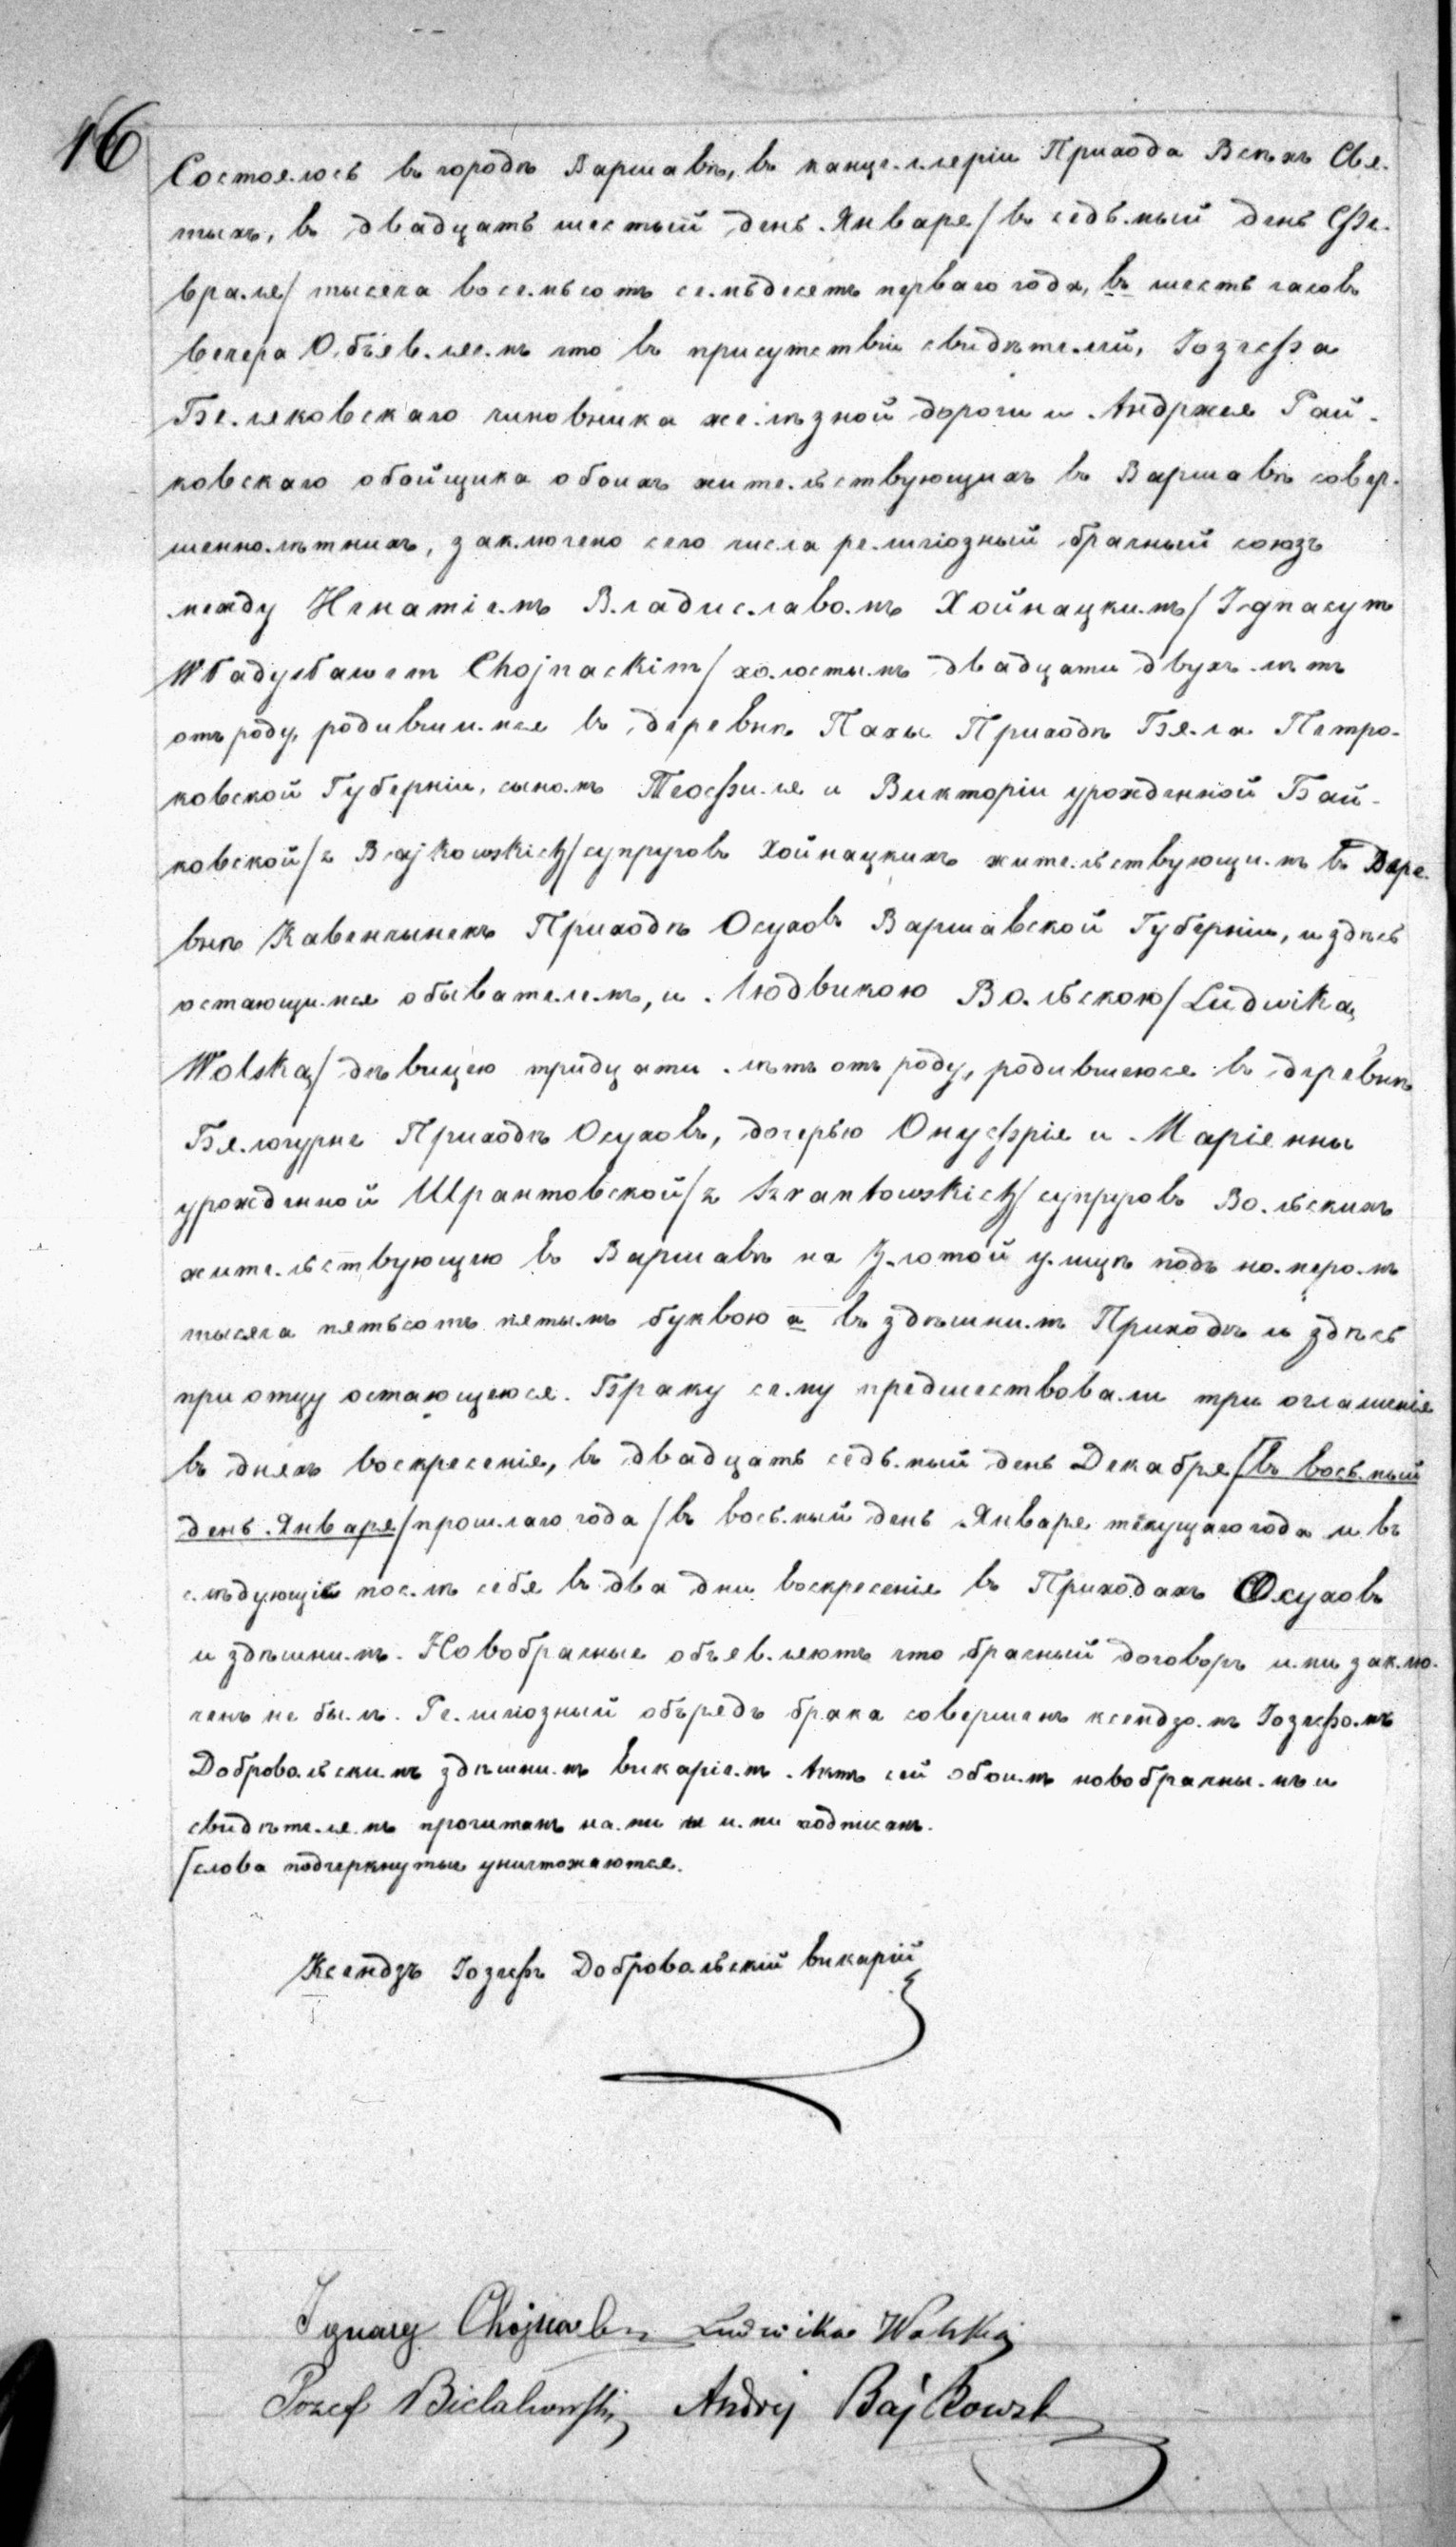 16
Состоялось въ городѣ Варшавѣ, въ канцелляріи Прихода Всѣхъ Свя-
тыхъ, въ двадцать шестый день Января/въ седьмый день Фе-
враля/ тысяча восемьсотъ семьдесятъ перваго года, въ шесть часовъ
вечера Объявляемъ что въ присутствіи свидѣтелей, Іозефа
Беляковскаго чиновника желѣзной дороги и Андржея Бай-
ковскаго обойщика обоихъ жительствующихъ въ Варшавѣ совер-
шеннолѣтнихъ, заключено сего числа религіозный брачный союзъ
между Игнатіемъ Владиславомъ Хойнацкимъ/Ignacym
Władysławem Chojnackim/ холостымъ двадцати двухъ лѣтъ
отъ роду, родившимся въ деревнѣ Пахы Приходѣ Бяла Петро-
ковской Губерніи, сыномъ Теофиля и Викторіи урожденной Бай-
ковской/z Bajkowskich/супруговъ Хойнацкихъ жительствующимъ въ Дере-
внѣ Кавенчынекъ Приходѣ Осуховъ Варшавской Губерніи, и здѣсь
остающимся обывателемъ, и Людвикою Вольскою/Ludwiką
Wolską/ дѣвицею тридцати лѣтъ отъ роду, родившеюся въ деревнѣ
Бялогурне Приходѣ Осуховъ, дочерью Онуфрія и Маріенны
урожденной Шрантовской/z Szrantowskich/супруговъ Вольскихъ
жительствующею въ Варшавѣ на Злотой улицѣ подъ номеромъ
тысяча пятьсотъ пятымъ буквою а въ здѣшнимъ Приходѣ и здѣсь
при отцу остающеюся. Браку сему предшествовали три оглашенія
въ дняхъ воскресенія, въ двадцать седьмый день Декабря/въ восьмый
день Января/прошлаго года/въ восьмый день Января текущаго года и въ
слѣдующіе послѣ себя въ два дни воскресенія въ Приходахъ Осуховъ
и здѣшнимъ. Новобрачные объявляютъ что брачный договоръ ими заклю-
ченъ не былъ. Религіозный обрядъ брака совершенъ ксендзомъ Іозефомъ
Добровольскимъ здѣшнимъ викаріемъ. Актъ сей обоимъ новобрачнымъ и
свидѣтелямъ прочитанъ нами и ими подписанъ.
/слова подчеркнутые уничтожаются.
Ксендзъ Іозефъ Добровольскій викарій
Ignacy Chojnacki Ludwika Wolska
Józef Bielakowski Andrzj Bajkowski